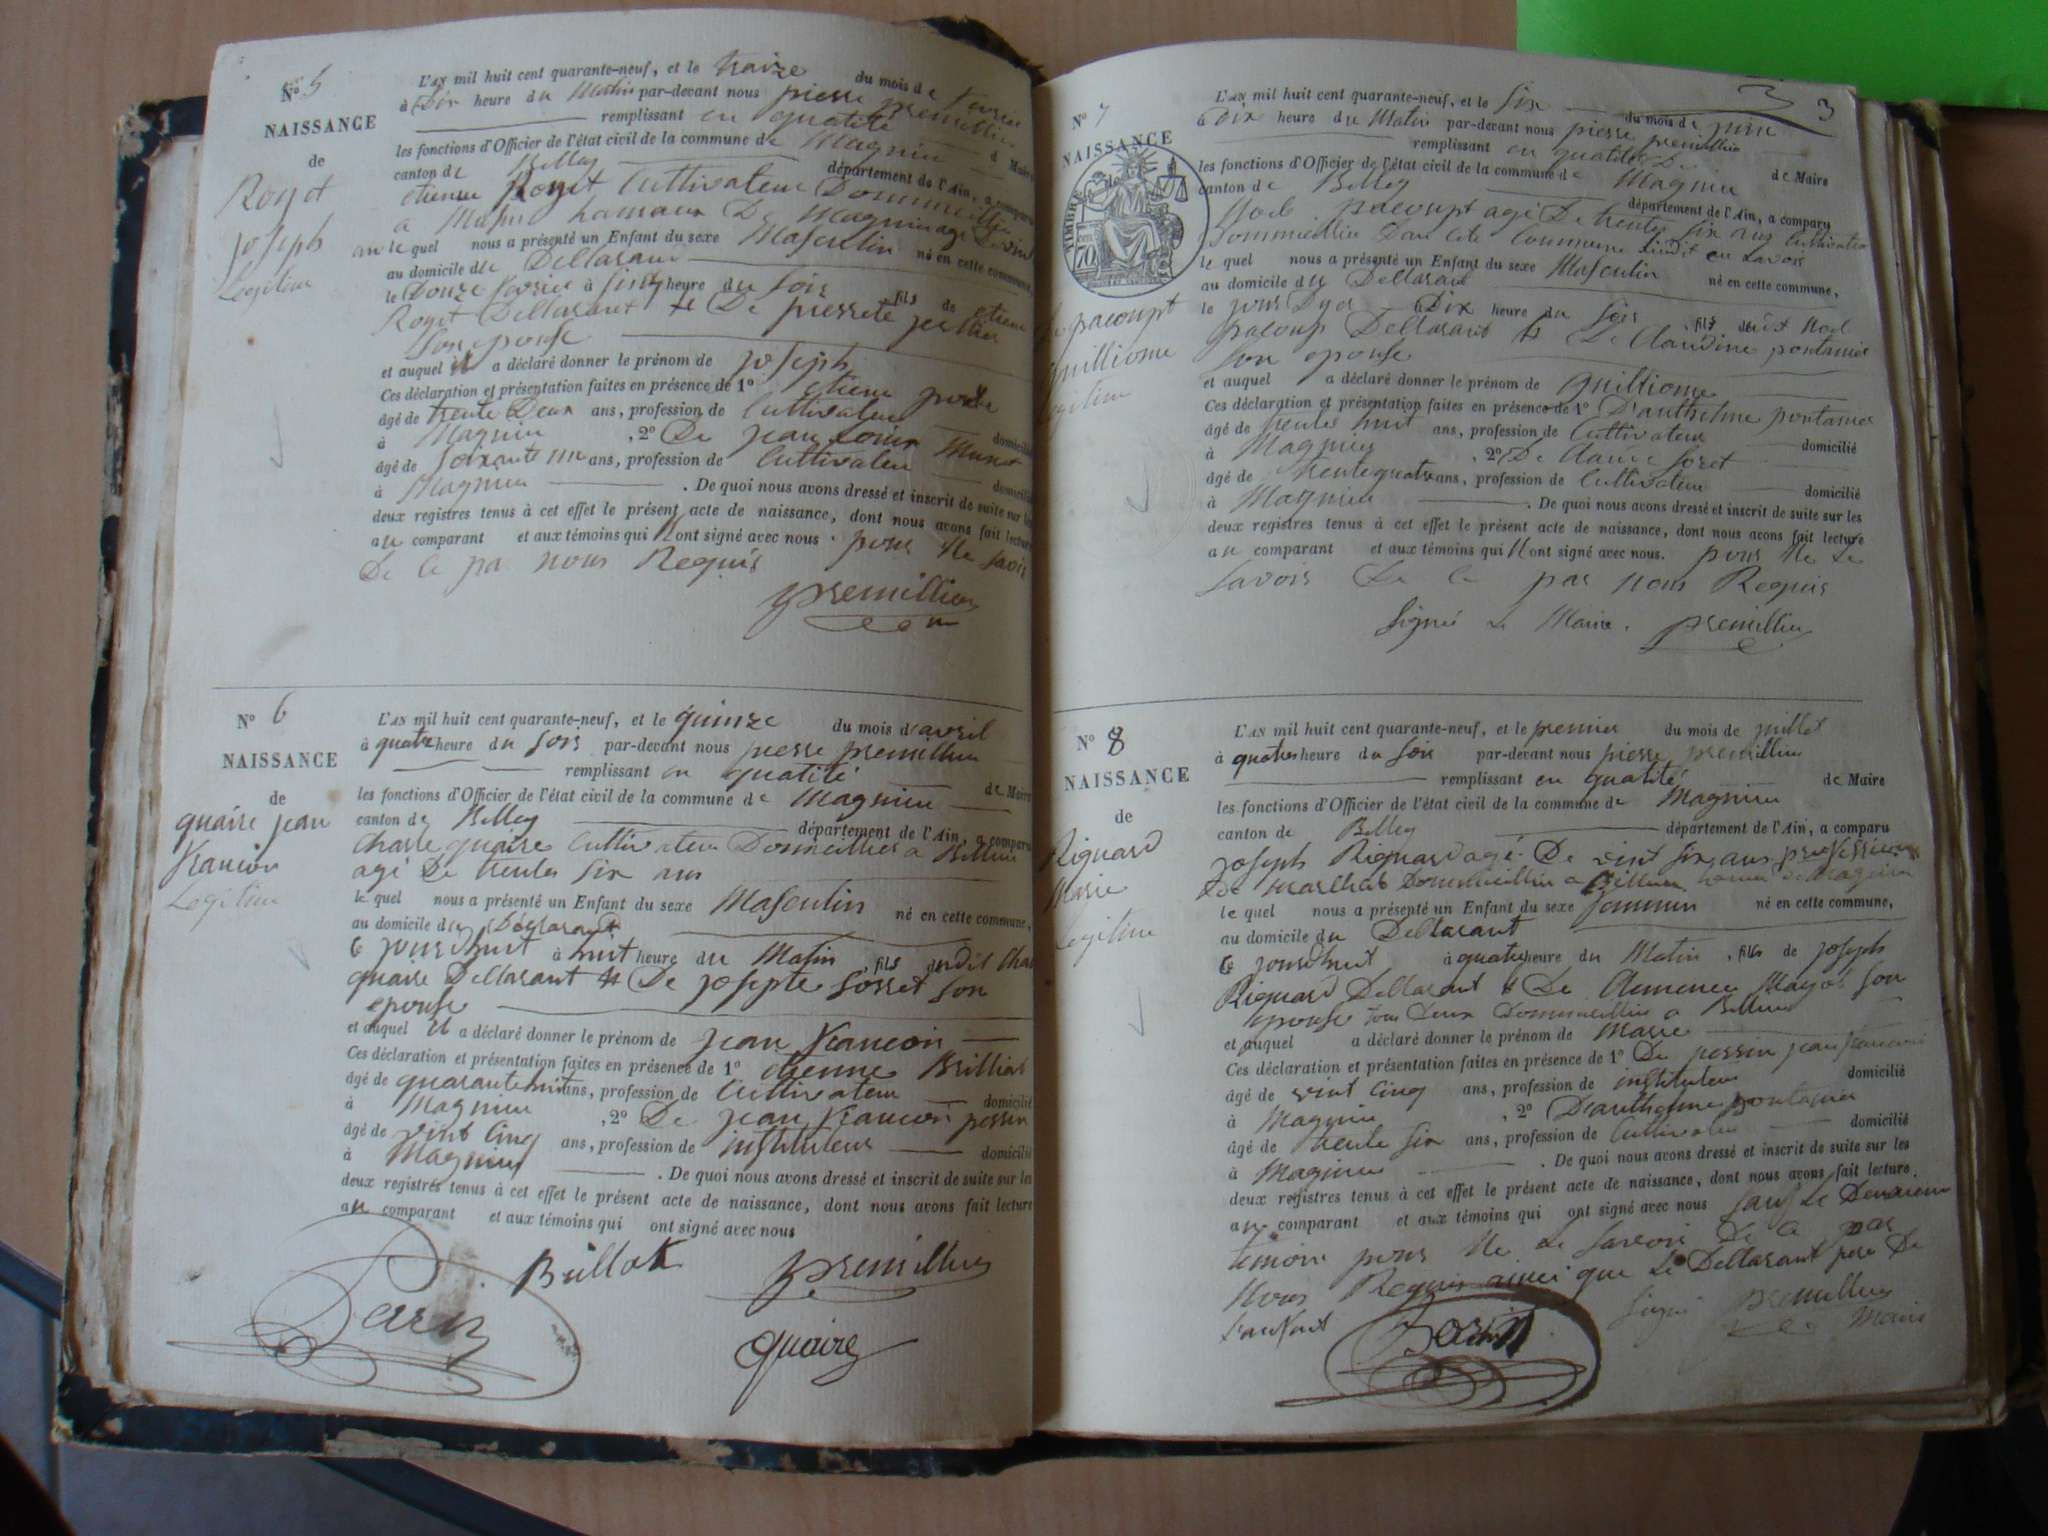 Nº 5
NAISSANCE
de
Royet
joseph
Legitime
L'AN mil huit cent quarante-neuf, et le traize du mois de
à Dix heure du Matin par-devant nous pierre premillieu
remplissant en qualité de Maire
les fonctions d'Officier de l'état civil de la commune de Magnieu
canton de Belley département de l'Ain, a comparu
etienne Royet Cultivateur
a hamaux De Magnieu agé
le quel nous a présenté un Enfant du sexe Masculin né en cette commune,
au domicile du Dellarant
le Douze fevrier à heure du Soir fils de etienne
Royet Dellarant & De pierrete
Son epouse
et auquel il a déclaré donner le prénom de joseph
Ces déclaration et présentation faites en présence de 1º etienne
âgé de trente Deux ans, profession de Cultivateur domicilié
à Magnieu , 2º De jean
âgé de soixante un ans, profession de Cultivateur domicilié
à Magnieu . De quoi nous avons dressé et inscrit de suite sur les
deux registres tenus à cet effet le présent acte de naissance, dont nous avons fait lecture
au comparant et aux témoins qui N ont signé avec nous. pour Ne savoir
De ce par nous Requis
premillieu
Nº 6
NAISSANCE
de
quaire jean
francois
Legitime
L'AN mil huit cent quarante-neuf, et le quinze du mois d'avril
à quatre heure du soir par-devant nous pierre premillieu
remplissant en qualité de Maire
les fonctions d'Officier de l'état civil de la commune de Magnieu
canton de Belley département de l'Ain, a comparu
Charle quaire Cultivateur a
agé De trentes six ans
le quel nous a présenté un Enfant du sexe Masculin né en cette commune,
au domicile du Dellarant
à huit heure du Matin, fils dudit
quaire Dellarant & De josepte Sorret son
epouse
et auquel il a déclaré donner le prénom de jean francois
Ces déclaration et présentation faites en présence de 1º etienne Brilliat
âgé de quarante huit ans, profession de Cultivateur domicilié
à Magnieu , 2º De jean francois
âgé de vint Cinq ans, profession de instituteur domicilié
à Magnieu . De quoi nous avons dressé et inscrit de suite sur les
deux registres tenus à cet effet le présent acte de naissance, dont nous avons fait lecture
au comparant et aux témoins qui ont signé avec nous
premillieu
quaire
3 3
Nº 7
NAISSANCE
TIMBRE
70
De pacoupt
guilliome
Legitime
L'AN mil huit cent quarante-neuf, et le Six du mois de juin
à Dix heure du Matin par-devant nous pierre premillieu
remplissant en qualité de Maire
les fonctions d'Officier de l'état civil de la commune de Magnieu
canton de Belley département de l'Ain, a comparu
Noel pacoupt agé De trentes six ans Cultivateur
Commune
le quel nous a présenté un Enfant du sexe Masculin né en cette commune,
au domicile du Dellarant
le jour Dyer Dix heure du Soir, fils dudit Noel
pacoup Dellarant & De Claudine pontanier
son epouse
et auquel a déclaré donner le prénom de guilliome
Ces déclaration et présentation faites en présence de 1º D'anthelme pontanier
âgé de trentes huit ans, profession de Cultivateur domicilié
à Magnieu , 2º De Claude Soret
âgé de trente quatre ans, profession de Cultivateur domicilié
à Magnieu . De quoi nous avons dressé et inscrit de suite sur les
deux registres tenus à cet effet le présent acte de naissance, dont nous avons fait lecture
au comparant et aux témoins qui N ont signé avec nous. pour Ne Le
savoir De ce par nous Requis
Signé Le Maire. premillieu
Nº 8
NAISSANCE
de
Riguard
Marie
Legitime
L'AN mil huit cent quarante-neuf, et le premier du mois de juillet
à quatres heure du soir par-devant nous pierre premillieu
remplissant en qualité de Maire
les fonctions d'Officier de l'état civil de la commune de Magnieu
canton de Belley département de l'Ain, a comparu
joseph Riguard agé De vint six ans profession
De
le quel nous a présenté un Enfant du sexe né en cette commune,
au domicile du Dellarant
à quatre heure du Matin, fille de joseph
Riguard Dellarant & De Clemence Son
epouse tous Deux a
et auquel a déclaré donner le prénom de Marie
Ces déclaration et présentation faites en présence de 1º De jean francois
âgé de vint Cinq ans, profession de instituteur domicilié
à Magnieu , 2º D'anthelme pontanier
âgé de trente six ans, profession de Cultivateur domicilié
à Magnieu . De quoi nous avons dressé et inscrit de suite sur les
deux registres tenus à cet effet le présent acte de naissance, dont nous avons fait lecture
au comparant et aux témoins qui ont signé avec nous sauf Le
temoin pour Ne Le savoir De ce par
Nous Requis ainsi que Le Dellarant pere De
L'anfant Signé premillieu
Maire